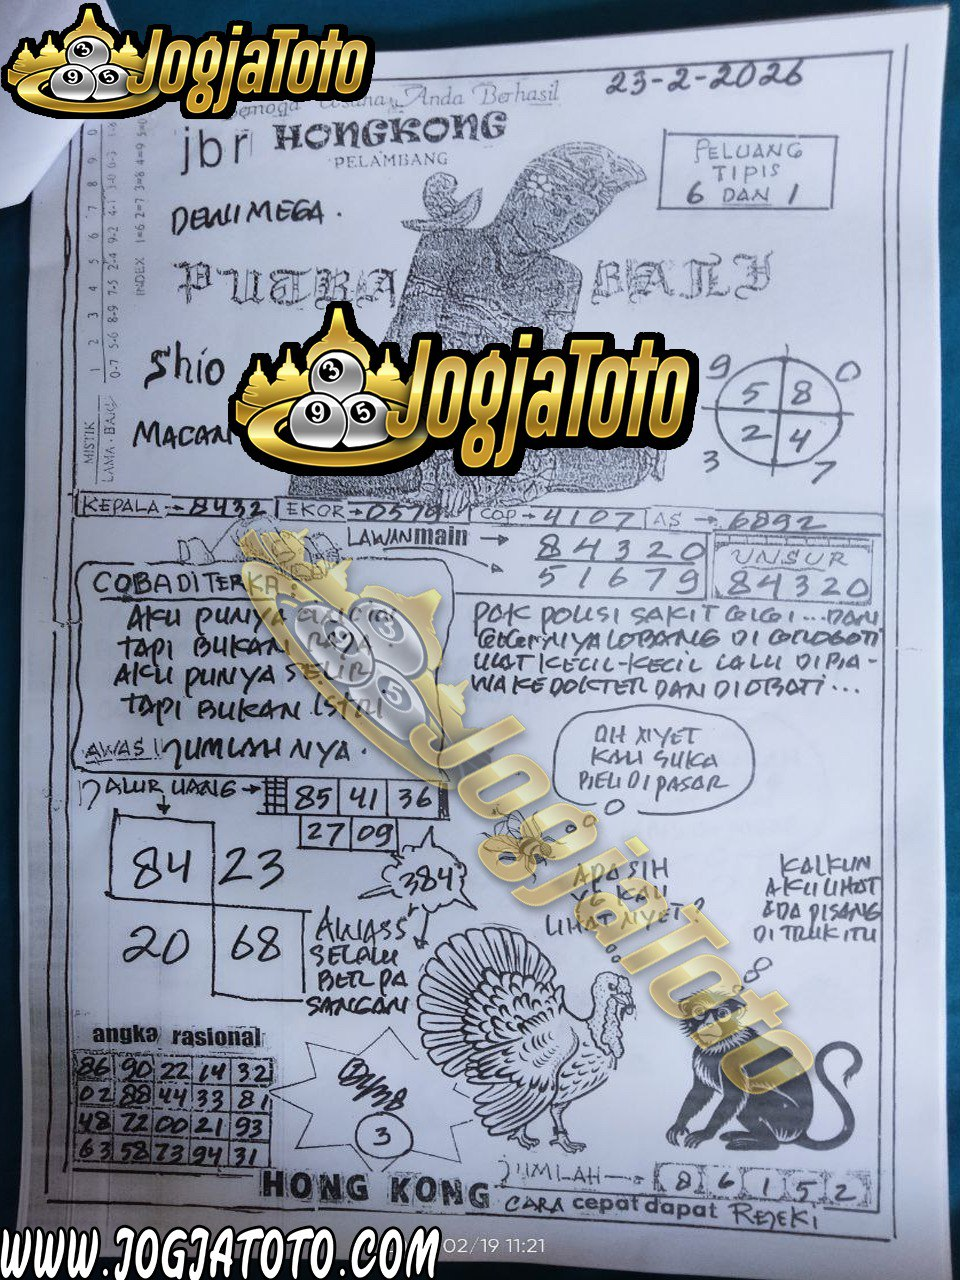 JogjaToto
23-2-2026
Anda Berhasil
jbr HONGKONG
PELAMBANG
PELUANG
TIPIS
6 DAN 1
DEWI MEGA.
PUTRA BALI
Shio
MACAN
JogjaToto
9 5 8 0
2 4
3 7
MISTIK
LAMA - BARU
INDEX
KEPALA → 8432 EKOR → 0578 COP → 4107 AS → 6892
LAWAN main → 84320
51679
UNSUR
84320
COBA DITERKA:
AKU PUNYA
TAPI BUKAN
AKU PUNYA SELIR
TAPI BUKAN ISTRI
AWAS! JUMLAH NYA.
PAK POLISI SAKIT GIGI... DAN
GIGINYA LOBANG DI GROGOTI
ULAT KECIL-KECIL LALU DIBA-
WA KE DOKTER DAN DIOBATI...
OH NYET
KAU SUKA
BELI DI PASAR
JALUR UANG → 85 41 36
27 09
84 23
20 68
384
AWASS
SELALU
BERPA
SANGAN
APA SIH
KAU
LIHAT NYET?
KALKUN
AKU LIHAT
ADA PISANG
DI TRUK ITU
JogjaToto
angka rasional
86 90 22 14 32
02 88 44 33 81
48 72 00 21 93
63 58 73 94 31
3
JUMLAH → 8 6 1 5 2
HONG KONG CARA cepat dapat REJEKI
WWW.JOGJATOTO.COM
02/19 11:21